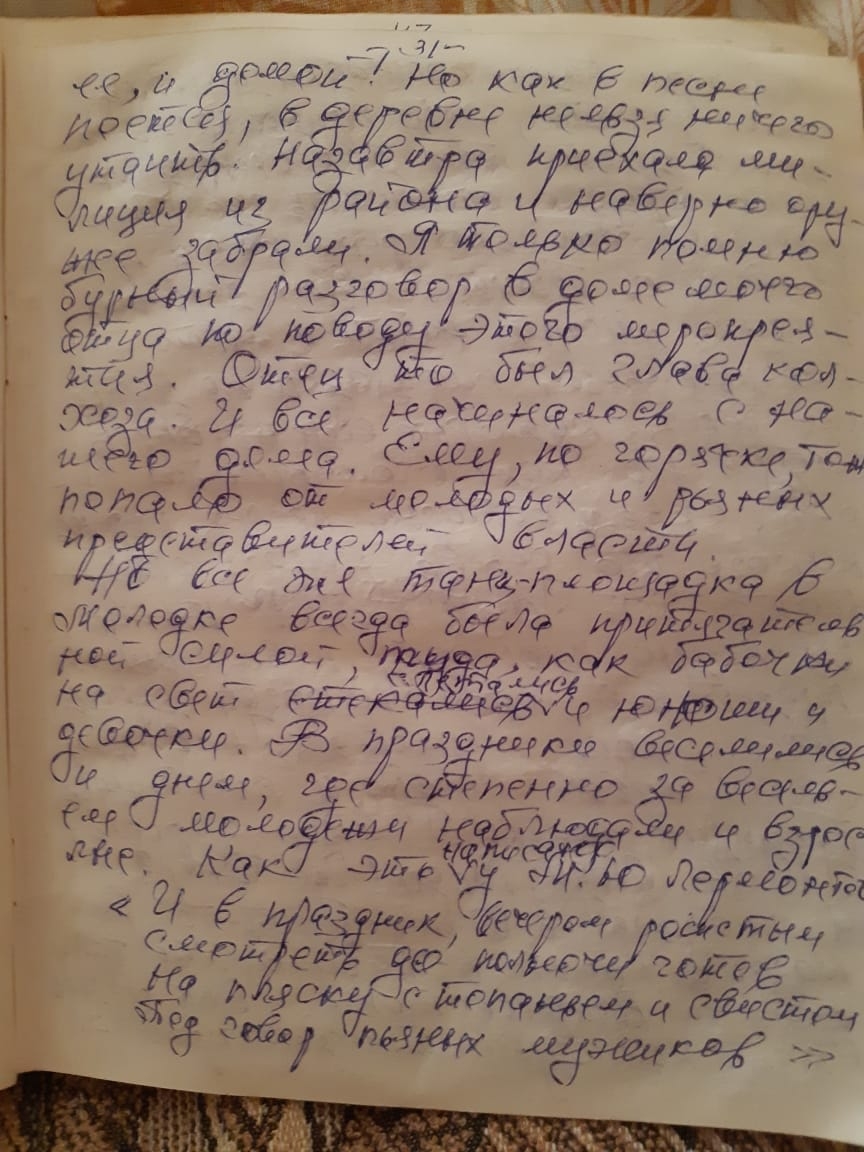 -31-
ее, и домой! Но как в песни
поется, в деревне нельзя ничего
утаить. Назавтра приехала ми-
лиция из района и наверно ору-
жее забрали. Я только помню
бурный разговор в доме моего
отца по поводу этого меропрея-
тия. Отец то был глава кол-
хоза. И все начиналось с на-
шего дома. Ему, по горячке, тож
попало от молодых и рьяных
представителей власти.
Но все же танц-площадка в
Молодке всегда была притягатель
ной силой, туда, как бабочки
на свет слетались и юноши и
девочки. В праздники веселились
и днем, где степенно за весель-
ем молодежи наблюдали и взрос
лые. Как это написано у М.Ю Лермонтов
«И в праздник, вечером росистым
смотреть до полночи готов
На пляску с топаньем и свистом
Под говор пьяных мужиков»